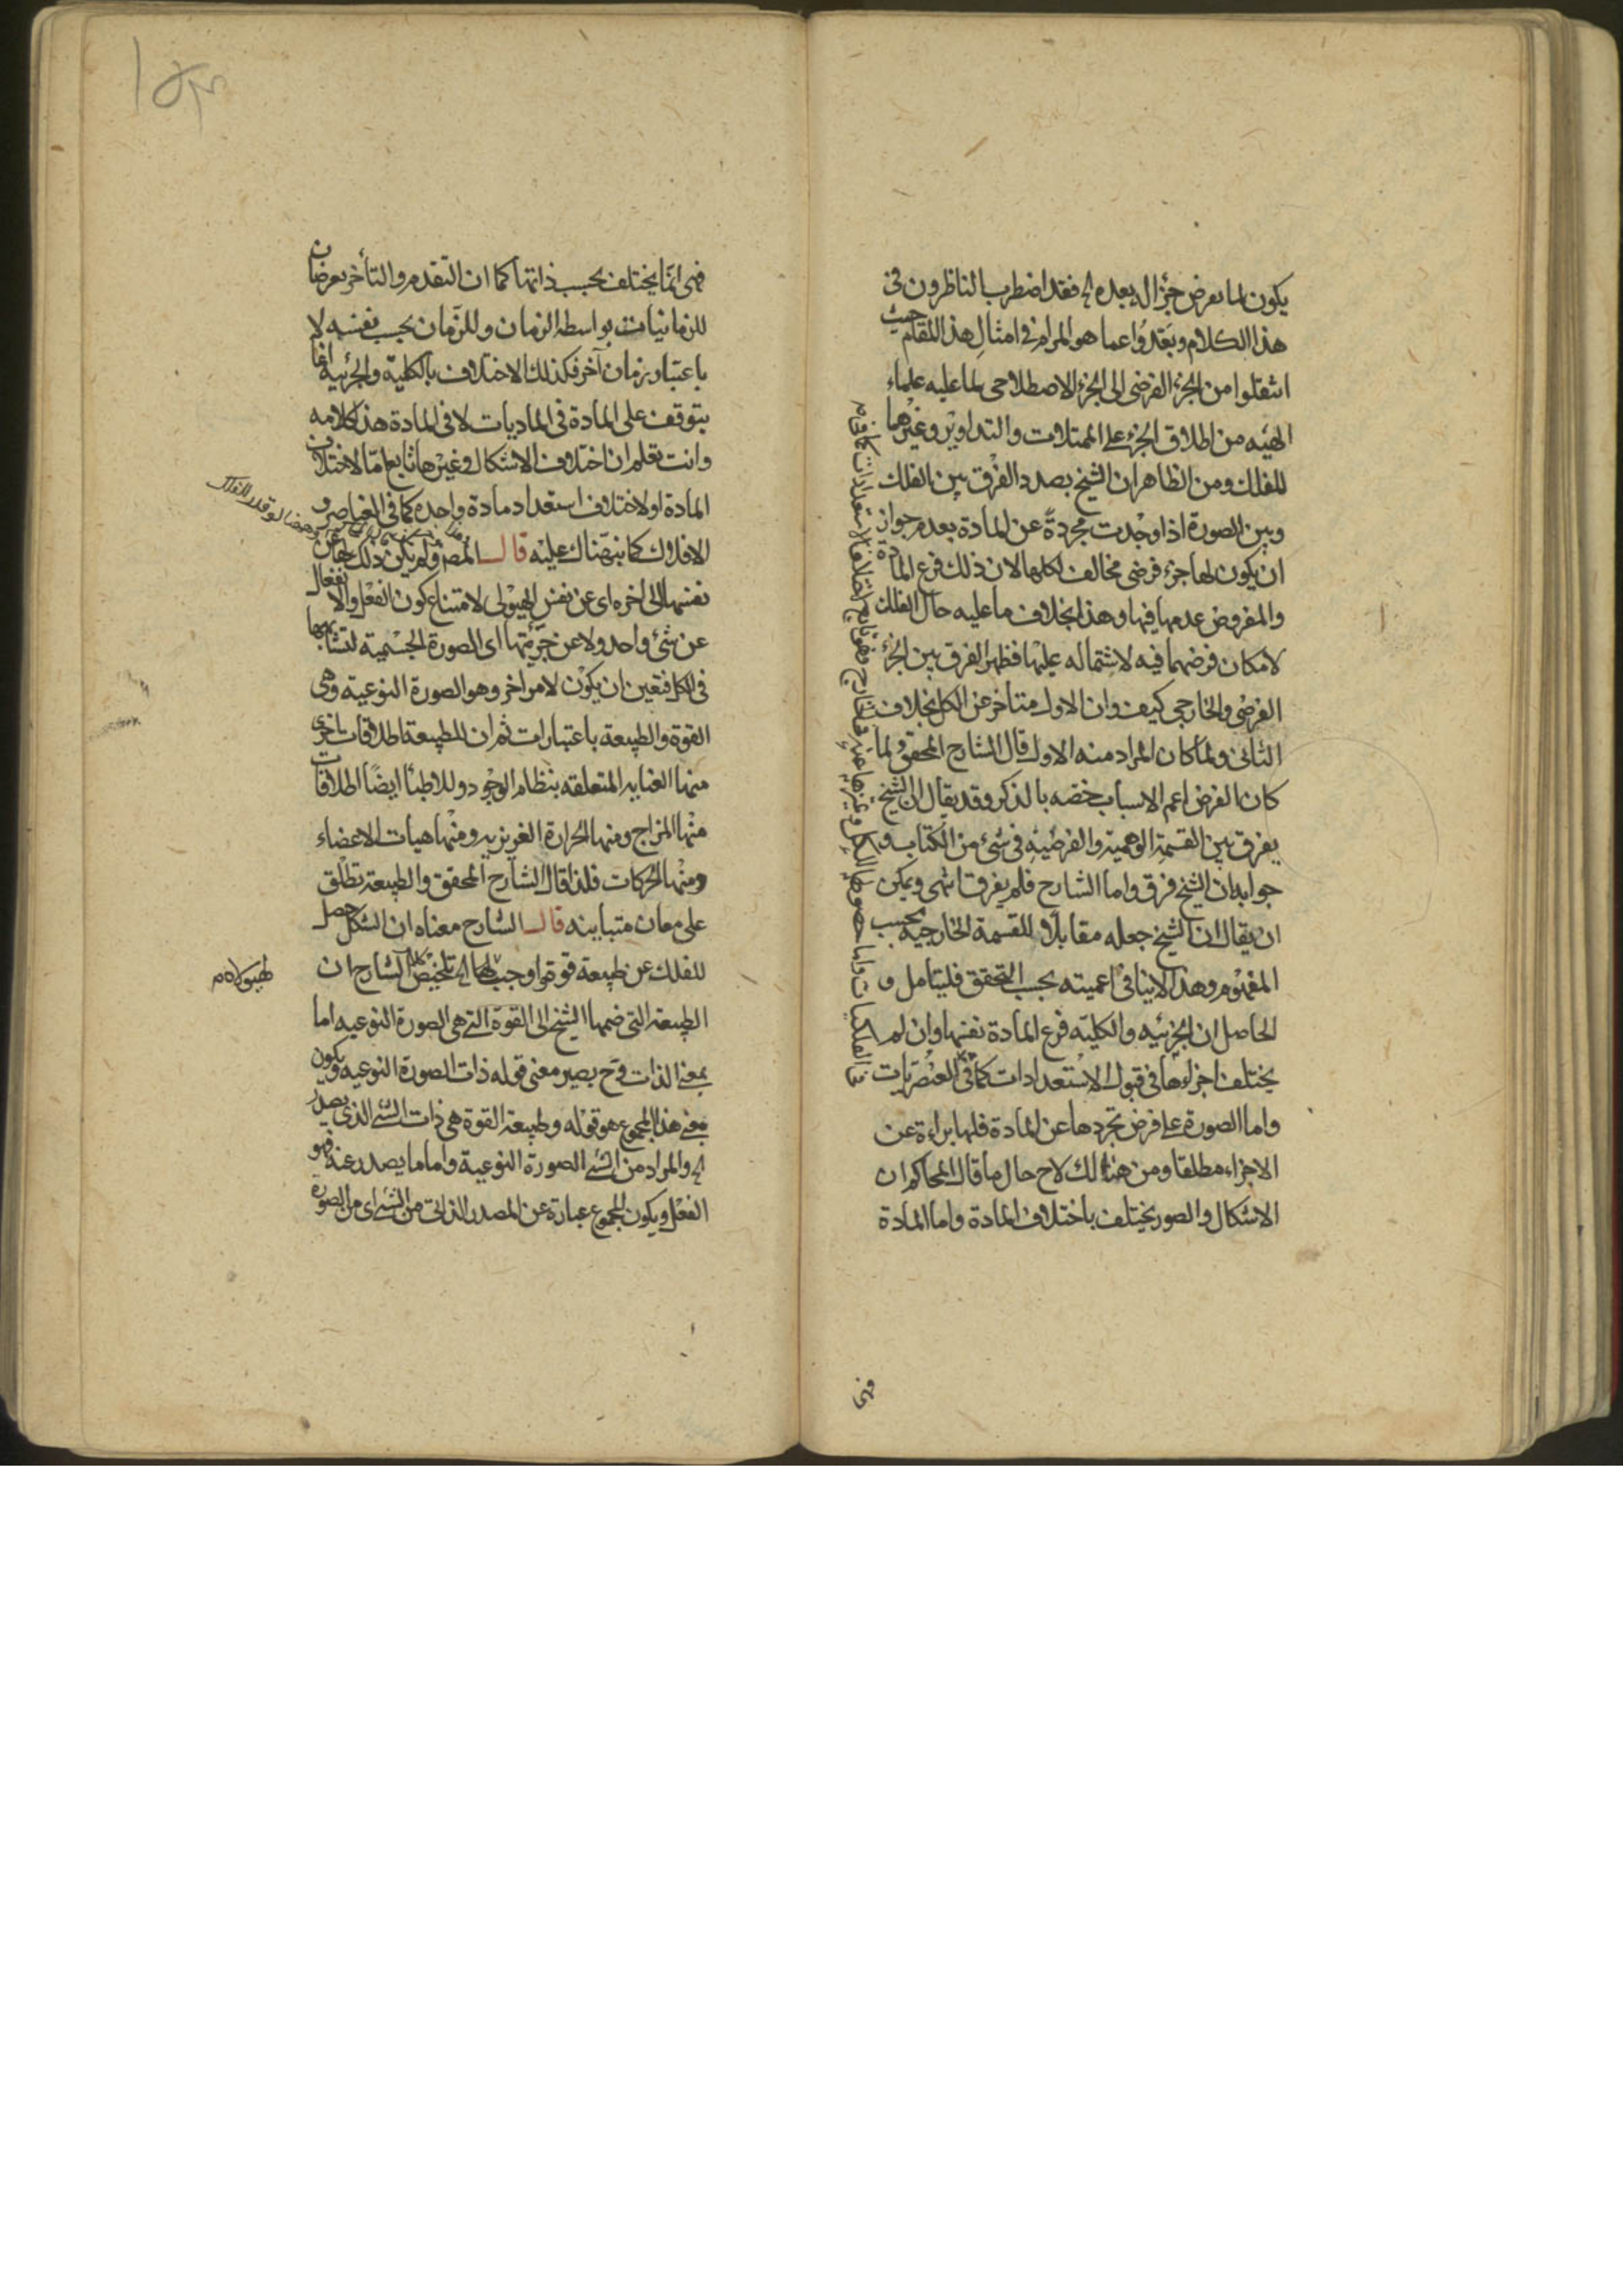 يكون لما يعرض جزأ له بعده الخ فقد اضطرب الناظرون في
هذا الكلام وبعدوا عما هو المرام في امثال هذا المقام حيث
انتقلوا من الجزء الفرضي الى الجزء الاصطلاحي لما عليه علماء
الهيئه من اطلاق الجزء على الممثلات والتداوير وغيرها
للفلك ومن الظاهر ان الشيخ بصدد الفرق بين الفلك
وبين الصورة اذا وجدت مجردة عن المادة بعدم جواز
ان يكون لها جزء فرضي مخالف لكلها لان ذلك فرع المادة
والمفروض عدمها فيها وهذا بخلاف ما عليه حال الفلك
لامكان فرضهما فيه لاشتماله عليها فظهر الفرق بين الجزء
الفرضي والخارجي كيف وان الاول متأخر عن الكل بخلاف
الثاني ولما كان المراد منه الاول قال الشارح المحقق ولما
كان الفرض اعم الاسباب خصه بالذكر وقد يقال ان الشيخ
يفرق بين القسمة الوهمية والفرضية في شئ من الكتاب و
جوابه ان الشيخ فرق واما الشارح فلم يفرق انتهى ويمكن
ان يقال ان الشيخ جعله مقابلا للقسمة الخارجيه بحسب
المفهوم وهذا لا ينافي اعميته بحسب التحقق فليتامل و
الحاصل ان الجزئيه والكليه فرع المادة نفسها وان لم
يختلف اجزاؤها في قبول الاستعدادات كما في العنصريات
واما الصورة على فرض تجردها عن المادة فلها براءة عن
الاجزاء مطلقا ومن هنالك لاح حال ما قال المحاكم ان
الاشكال والصور يختلف باختلاف المادة واما المادة
فهى
فهى انما يختلف بحسب ذاتها كما ان التقدم والتأخر يعرضان
للزمانيات بواسطه الزمان وللزمان بحسب نفسه لا
باعتبار زمان آخر فكذلك الاختلاف بالكلية والجزئية انما
يتوقف على المادة في الماديات لا في المادة هذا كلامه
وانت تعلم ان اختلاف الاشكال وغيرها تابع اما لاختلاف
المادة او لاختلاف استعداد مادة واحده كما في العناصر و
الافلاك كما نبهناك عليه قال المص ولم يكن ذلك لها عن
نفسها الى اخره اى عن نفس الهيولى لامتناع كون الفعل والانفعال
عن شئ واحد ولا عن جزئيتها اى الصورة الجسمية لتشابهها
في الكل فتعين ان يكون لامر اخر وهو الصورة النوعية وهى
القوة والطبيعة باعتبارات ثم ان للطبيعة اطلاقات اخرى
منها العنايه المتعلقه بنظام الوجود وللاطبأ ايضا اطلاقات
منها المزاج ومنها الحرارة الغريزيه ومنها هيات الاعضاء
ومنها الحركات فلذا قال الشارح المحقق والطبيعة تطلق
على معان متباينه قال الشارح معناه ان الشكل حصل
للفلك عن طبيعة قوته اوجبت لها الخ تلخيص كلام الشارح ان
لهيولاه م
الطبيعة التي ضمها الشيخ الى القوة التي هى الصورة النوعيه اما
بمعنى الذات وح يصير معنى قوله ذات الصورة النوعيه ويكون
معنى هذا المجموع هو قوله وطبيعة القوة هى ذات الشئ الذى يصدر
الخ والمراد من الشئ الصورة النوعية واما ما يصدر عنه فهو
الفعل ويكون المجموع عبارة عن المصدر الذاتي من الشئ اى من الصورة